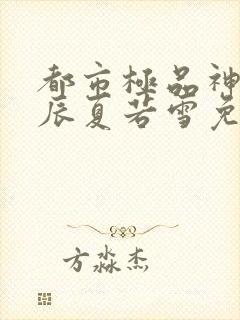 都市極品神
辰夏若雪免
方淼杰